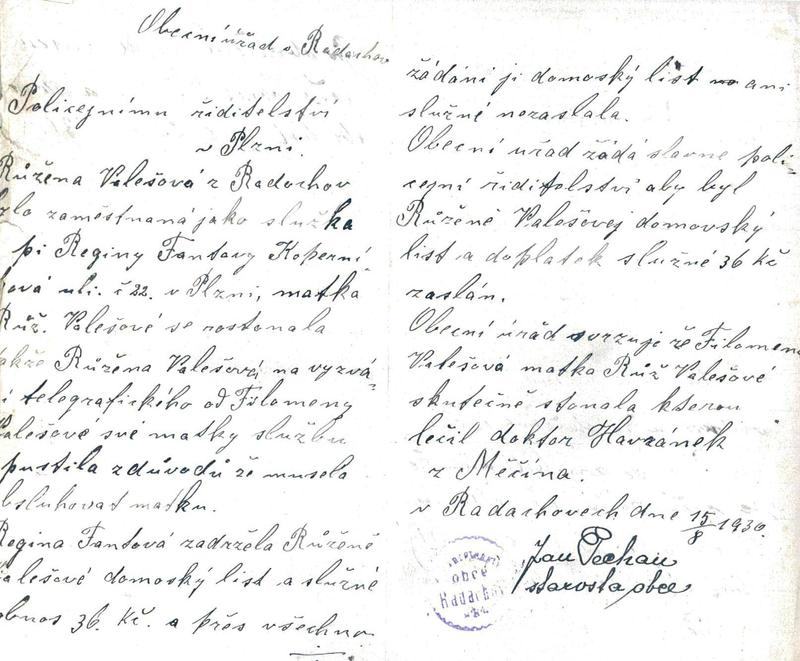 Obecní úřad v Radachov
Policejnímu řiditelství
v Plzni.
Růžena Valešová z Radochov
zaměstnaná jako služka
pi Reginy Fantovy Koperní
ková uli. č 22. v Plzni, matka
Růž. Valešové se rostonala
takže Růžena Valešové na vyzvá-
í telegrafického od Filomeny
Valešove své matky službu
pustila zdůvodů že musela
bsluhovat matku.
Regina Fantová zadržela Růženě
Valešové domoský list a služné
obnos 36. Kč. a přes všechno
žádáni ji domoský list ani
služné nezaslala.
Obecní uřad žádá slavne poli-
cejní řiditelství aby byl
Růženě Valešovej domovský
list a doplatek služné 36 Kč
zaslán.
Obecní úřad stvrzuje že Filomena
Valešová matka Růž Valešové
skutečně stonala kterou
lečil doktor Havránek
z Měčina.
v Radachovech dne 15/8 1930.
Jan Pechan
starosta obce
obce
Radachov